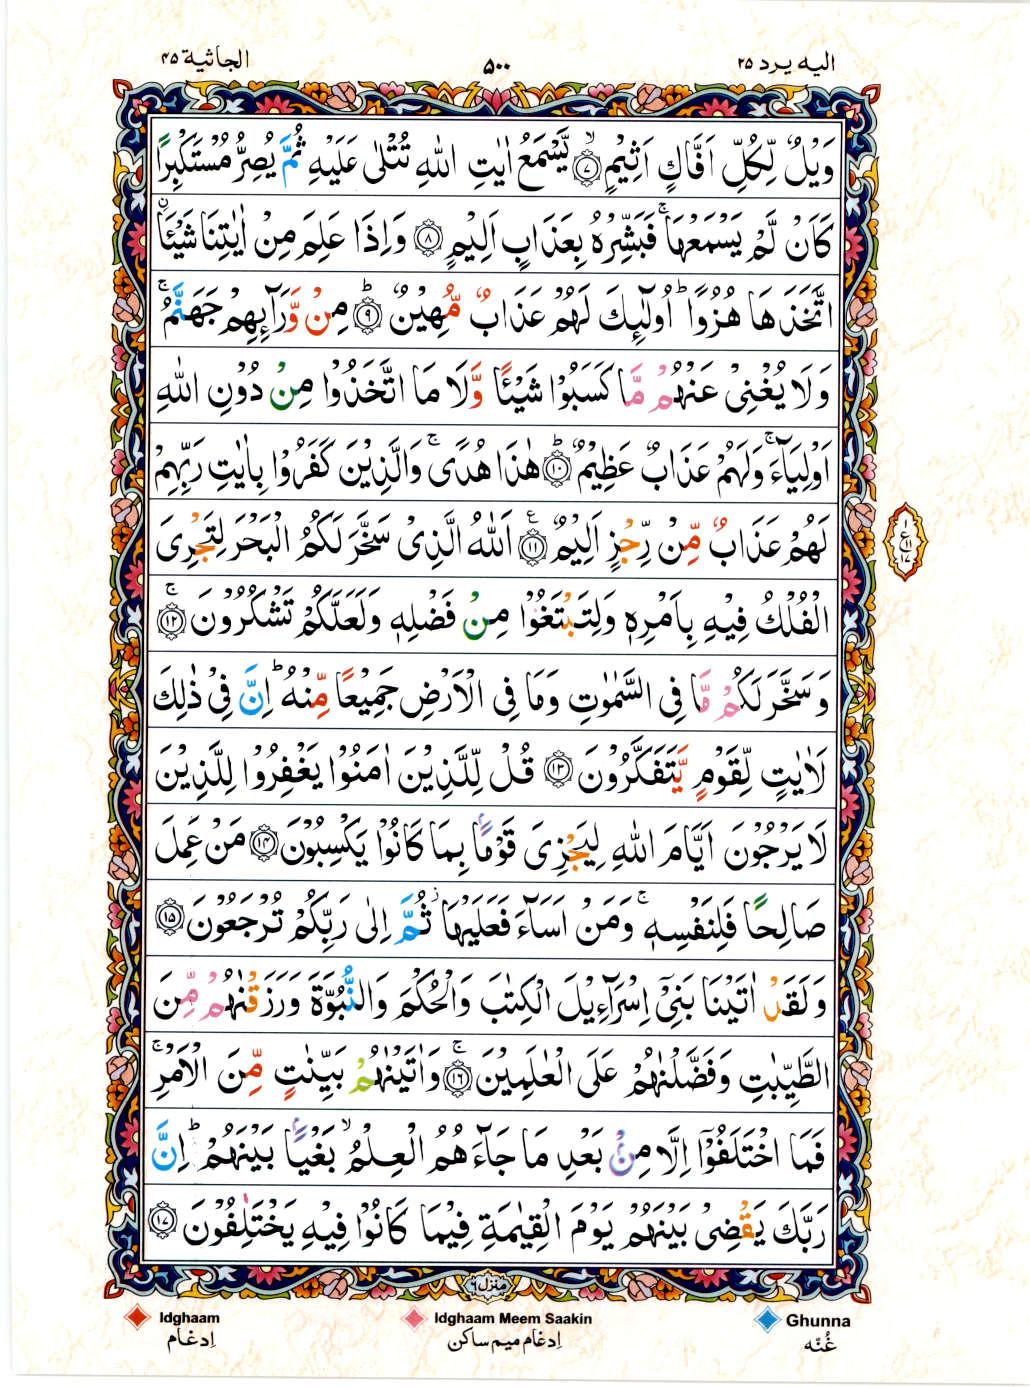 الجاثية ٤٥
٥٠٠
اليه يرد ٢٥
وَيْلٌ لِّكُلِّ اَفَّاكٍ اَثِيْمٍۙ ﴿۷﴾ يَّسْمَعُ اٰيٰتِ اللّٰهِ تُتْلٰى عَلَيْهِ ثُمَّ يُصِرُّ مُسْتَكْبِرًا
كَاَنْ لَّمْ يَسْمَعْهَاۚ فَبَشِّرْهُ بِعَذَابٍ اَلِيْمٍ ﴿۸﴾ وَاِذَا عَلِمَ مِنْ اٰيٰتِنَا شَيْـًٔاۨ
اتَّخَذَهَا هُزُوًاؕ اُولٰٓئِكَ لَهُمْ عَذَابٌ مُّهِيْنٌؕ ﴿۹﴾ مِنْ وَّرَآئِهِمْ جَهَنَّمُۚ
وَلَا يُغْنِيْ عَنْهُمْ مَّا كَسَبُوْا شَيْـًٔا وَّلَا مَا اتَّخَذُوْا مِنْ دُوْنِ اللّٰهِ
اَوْلِيَآءَۚ وَلَهُمْ عَذَابٌ عَظِيْمٌؕ ﴿۱۰﴾ هٰذَا هُدًىۚ وَالَّذِيْنَ كَفَرُوْا بِاٰيٰتِ رَبِّهِمْ
لَهُمْ عَذَابٌ مِّنْ رِّجْزٍ اَلِيْمٌ ﴿۱۱﴾ ع اَللّٰهُ الَّذِيْ سَخَّرَ لَكُمُ الْبَحْرَ لِتَجْرِيَ
الْفُلْكُ فِيْهِ بِاَمْرِهٖ وَلِتَبْتَغُوْا مِنْ فَضْلِهٖ وَلَعَلَّكُمْ تَشْكُرُوْنَۚ ﴿۱۲﴾
وَسَخَّرَ لَكُمْ مَّا فِي السَّمٰوٰتِ وَمَا فِي الْاَرْضِ جَمِيْعًا مِّنْهُؕ اِنَّ فِيْ ذٰلِكَ
لَاٰيٰتٍ لِّقَوْمٍ يَّتَفَكَّرُوْنَ ﴿۱۳﴾ قُلْ لِّلَّذِيْنَ اٰمَنُوْا يَغْفِرُوْا لِلَّذِيْنَ
لَا يَرْجُوْنَ اَيَّامَ اللّٰهِ لِيَجْزِيَ قَوْمًاۢ بِمَا كَانُوْا يَكْسِبُوْنَ ﴿۱۴﴾ مَنْ عَمِلَ
صَالِحًا فَلِنَفْسِهٖۚ وَمَنْ اَسَآءَ فَعَلَيْهَاؗ ثُمَّ اِلٰى رَبِّكُمْ تُرْجَعُوْنَ ﴿۱۵﴾
وَلَقَدْ اٰتَيْنَا بَنِيْٓ اِسْرَآءِيْلَ الْكِتٰبَ وَالْحُكْمَ وَالنُّبُوَّةَ وَرَزَقْنٰهُمْ مِّنَ
الطَّيِّبٰتِ وَفَضَّلْنٰهُمْ عَلَى الْعٰلَمِيْنَۚ ﴿۱۶﴾ وَاٰتَيْنٰهُمْ بَيِّنٰتٍ مِّنَ الْاَمْرِۚ
فَمَا اخْتَلَفُوْٓا اِلَّا مِنْۢ بَعْدِ مَا جَآءَهُمُ الْعِلْمُۙ بَغْيًاۢ بَيْنَهُمْؕ اِنَّ
رَبَّكَ يَقْضِيْ بَيْنَهُمْ يَوْمَ الْقِيٰمَةِ فِيْمَا كَانُوْا فِيْهِ يَخْتَلِفُوْنَ ﴿۱۷﴾
منزل ٦
Idghaam
اِدغام
Idghaam Meem Saakin
اِدغام میم ساکن
Ghunna
غُنّه